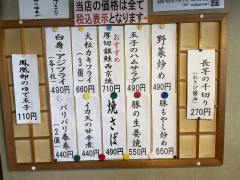 当店の価格は全て
税込表示となります
長芋の千切り
(わさび醤油)
270円
野菜炒め
490円
豚もやし炒め
550円
玉子のハムサラダ
490円
豚の生姜焼
550円
おすすめ
厚切銀鮭西京焼
710円
焼さば
490円
大粒カキフライ
(3個)
660円
イカ天の甘辛煮
440円
白身・アジフライ
(各1枚)
490円
パリパリ春巻
440円
鳳凰卵のゆで玉子
110円